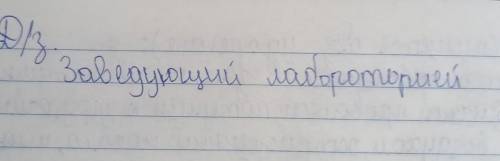 Д/з.
Заведующий лаборoторией